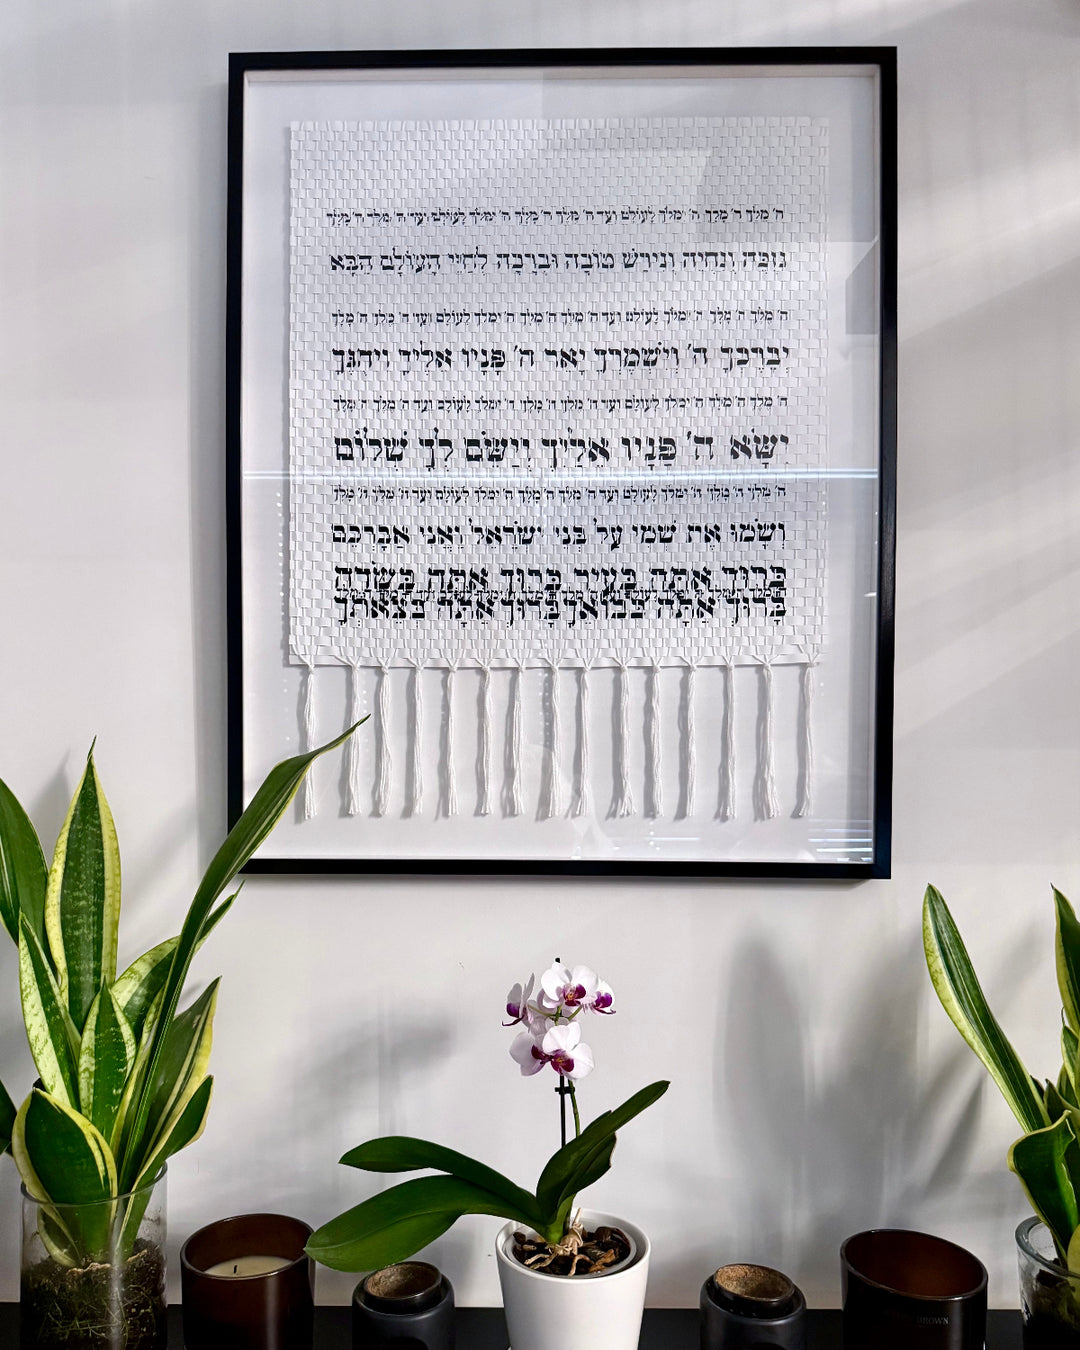 ה' מֶלֶךְ ה' מָלָךְ ה' יִמְלֹךְ לְעוֹלָם וָעֶד ה' מֶלֶךְ ה' מָלָךְ ה' יִמְלֹךְ לְעוֹלָם וָעֶד ה' מֶלֶךְ ה' מָלָךְ
נִזְכֶּה וְנִחְיֶה וְנִירַשׁ טוֹבָה וּבְרָכָה לְחַיֵּי הָעוֹלָם הַבָּא
ה' מֶלֶךְ ה' מָלָךְ ה' יִמְלֹךְ לְעוֹלָם וָעֶד ה' מֶלֶךְ ה' מָלָךְ ה' יִמְלֹךְ לְעוֹלָם וָעֶד ה' מֶלֶךְ ה' מָלָךְ
יְבָרֶכְךָ ה' וְיִשְׁמְרֶךָ יָאֵר ה' פָּנָיו אֵלֶיךָ וִיחֻנֶּךָּ
ה' מֶלֶךְ ה' מָלָךְ ה' יִמְלֹךְ לְעוֹלָם וָעֶד ה' מֶלֶךְ ה' מָלָךְ ה' יִמְלֹךְ לְעוֹלָם וָעֶד ה' מֶלֶךְ ה' מָלָךְ
יִשָּׂא ה' פָּנָיו אֵלֶיךָ וְיָשֵׂם לְךָ שָׁלוֹם
ה' מֶלֶךְ ה' מָלָךְ ה' יִמְלֹךְ לְעוֹלָם וָעֶד ה' מֶלֶךְ ה' מָלָךְ ה' יִמְלֹךְ לְעוֹלָם וָעֶד ה' מֶלֶךְ ה' מָלָךְ
וְשָׂמוּ אֶת שְׁמִי עַל בְּנֵי יִשְׂרָאֵל וַאֲנִי אֲבָרְכֵם
בָּרוּךְ אַתָּה בָּעִיר בָּרוּךְ אַתָּה בַּשָּׂדֶה
בָּרוּךְ אַתָּה בְּבוֹאֶךָ בָּרוּךְ אַתָּה בְּצֵאתֶךָ
BROWN